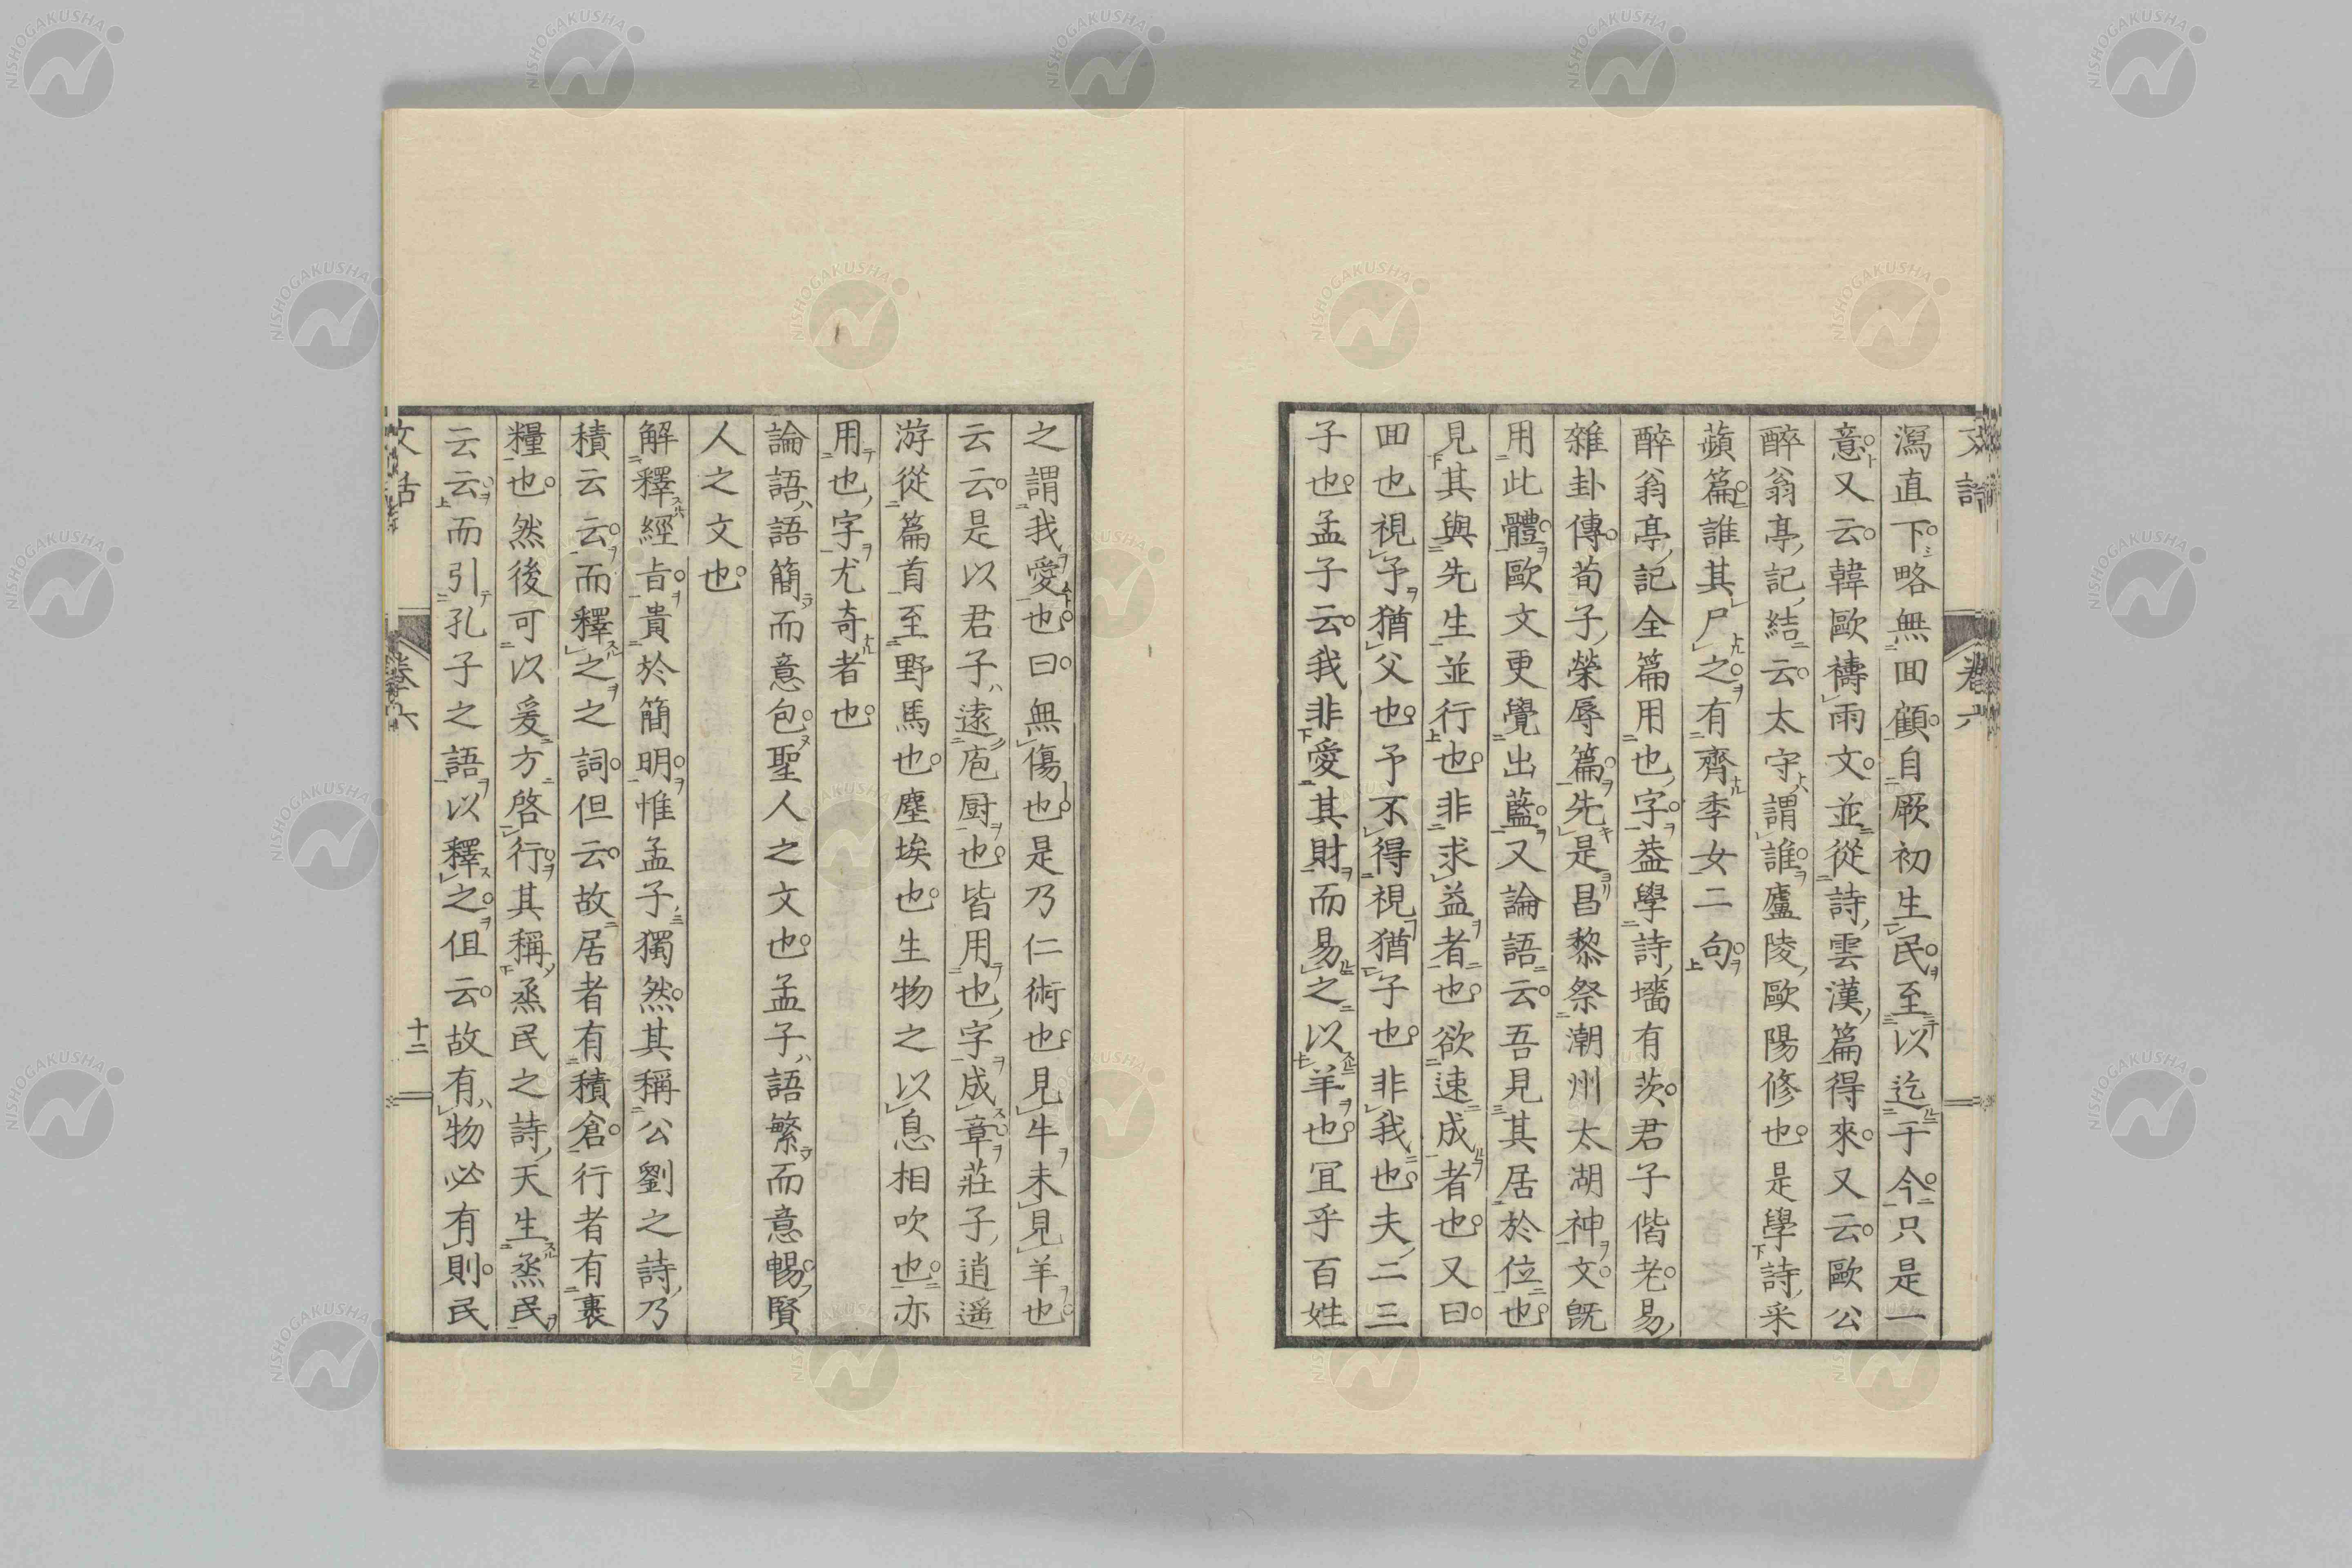 瀉直下略無回顧自厥初生民至以迄于今只是一
意又云韓歐禱雨文並從詩雲漢篇得來又云歐公
醉翁亭記結云太守謂誰廬陵歐陽修也是學詩采
蘋篇誰其尸之有齊季女二句
醉翁亭記全篇用也字葢學詩墻有茨君子偕老易
雜卦傳荀子榮辱篇先是昌黎祭潮州太湖神文旣
用此體歐文更覺出藍又論語云吾見其居於位也
見其與先生並行也非求益者也欲速成者也又曰
回也視予猶父也予不得視猶子也非我也夫二三
子也孟子云我非愛其財而易之以羊也冝乎百姓
之謂我愛也曰無傷也是乃仁術也見牛未見羊也
云云是以君子遠庖厨也皆用也字成章莊子逍遥
游從篇首至野馬也塵埃也生物之以息相吹也亦
用也字尤奇者也
論語語簡而意包聖人之文也孟子語繁而意暢賢
人之文也
解釋經旨貴於簡明惟孟子獨然其稱公劉之詩乃
積云云而釋之之詞但云故居者有積倉行者有裹
糧也然後可以爰方啓行其稱烝民之詩天生烝民
云云而引孔子之語以釋之但云故有物必有則民
文話
卷六
十二